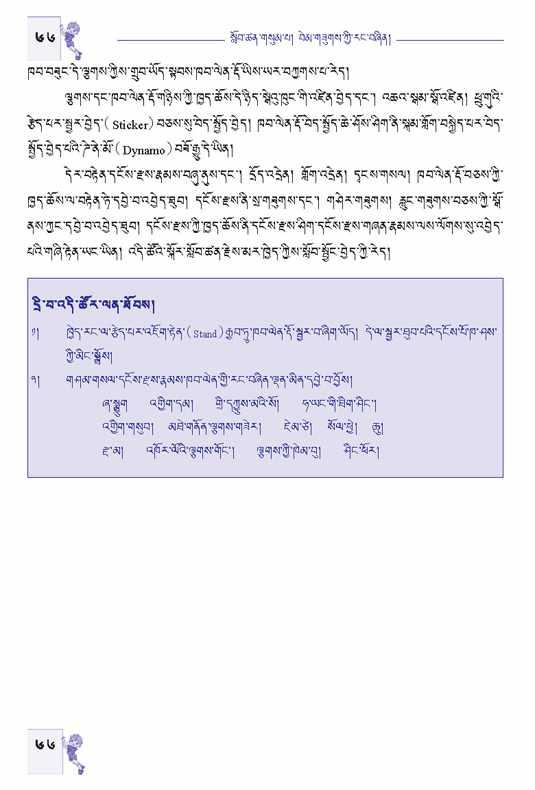 ༦༦
སློབ་ཚན་གསུམ་པ། བེམ་གཟུགས་ཀྱི་རང་བཞིན།
ཁབ་བཟུང་དེ་ལྕགས་ཀྱིས་གྲུབ་ཡོད་སྟབས་ཁབ་ལེན་རྡོ་ཡིས་ཡར་བཀྱགས་པ་རེད།
ལྕགས་དང་ཁབ་ལེན་རྡོ་གཉིས་ཀྱི་ཁྱད་ཆོས་དེ་ཉིད་སྒེའུ་ཁུང་གི་འཛིན་བྱེད་དང་། འཆའ་སྒམ་སྒོ་འཛིན། ཕྲུ་གུའི་
རྩེད་པར་སྦྱར་བྱེད་( Sticker) བཅས་སུ་བེད་སྤྱོད་བྱེད། ཁབ་ལེན་རྡོ་བེད་སྤྱོད་ཆེ་ཤོས་ཤིག་ནི་སྐམ་གློག་བསྐྱེད་པར་བེད་
སྤྱོད་བྱེད་པའི་ཌེ་ནེ་མོ་( Dynamo) བཟོ་རྒྱུ་དེ་ཡིན།
དེར་བརྟེན་དངོས་རྫས་རྣམས་བཞུ་ནུས་དང་། དྲོད་འདྲེན། གློག་འདྲེན། དྭངས་གསལ། ཁབ་ལེན་རྡོ་བཅས་ཀྱི་
ཁྱད་ཆོས་ལ་བརྟེན་ཏེ་དབྱེ་བ་འབྱེད་ཐུབ། དངོས་རྫས་ནི་སྲ་གཟུགས་དང་། གཤེར་གཟུགས། རླུང་གཟུགས་བཅས་ཀྱི་སྒོ་
ནས་ཀྱང་དབྱེ་བ་འབྱེད་ཐུབ། དངོས་རྫས་ཀྱི་ཁྱད་ཆོས་ནི་དངོས་རྫས་ཤིག་དངོས་རྫས་གཞན་རྣམས་ལས་ལོགས་སུ་འབྱེད་
པའི་གཞི་རྟེན་ཡང་ཡིན། འདི་ཚོའི་སྐོར་སློབ་ཚན་རྗེས་མར་ཁྱེད་ཀྱིས་སློབ་སྦྱོང་བྱེད་ཀྱི་རེད།
དྲི་བ་འདི་ཚོར་ལན་ཐོབས།
༡། ཁྱེད་རང་ལ་རྩེད་པར་འཇོག་རྟེན་( Stand) རྒྱབ་ཏུ་ཁབ་ལེན་རྡོ་སྦྱར་བ་ཞིག་ཡོད། དེ་ལ་སྦྱར་ཐུབ་པའི་དངོས་པོ་ཁ་ཤས་
ཀྱི་མིང་སྒྲོས།
༢། གཤམ་གསལ་དངོས་རྫས་རྣམས་ཁབ་ལེན་གྱི་རང་བཞིན་ལྡན་མིན་དབྱེ་བ་བྱོས།
ཞ་སྨྱུག འགྱིག་དམ། གྲི་དཀྱུས་མའི་སོ། ཧ་ཡང་གི་ཐིག་ཤིང་།
འགྱིག་གསུབ། མཐེ་གནོན་ལྕགས་གཟེར། ཇེམ་ཙེ། སོལ་ཕྱེ། ཆུ།
རྫ་མ། འཁོར་ལོའི་ལྕགས་གོང་། ལྕགས་ཀྱི་ཁེམ་བུ། ཤིང་ཕོར།
༦༦